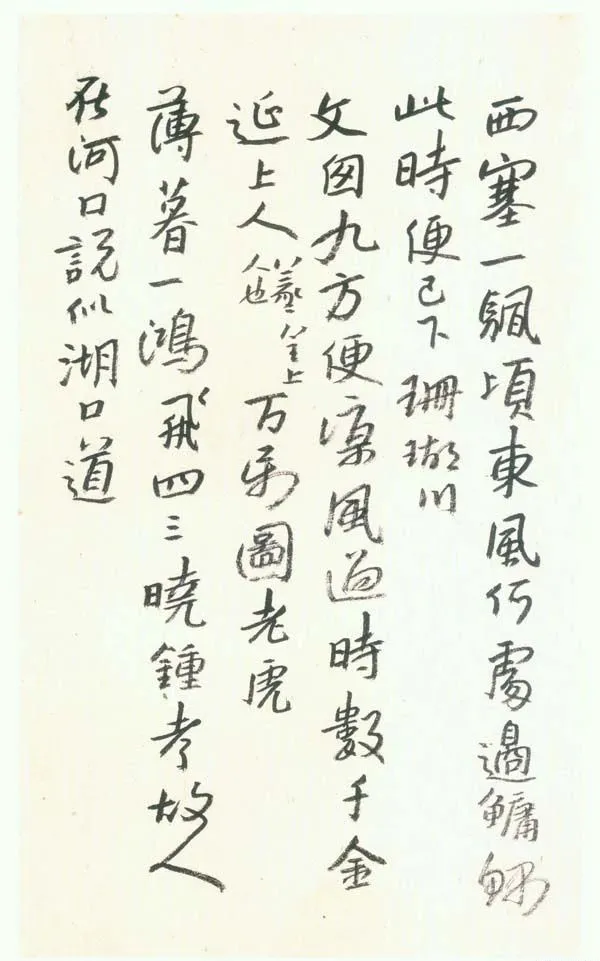 西塞一颿頃東風何處過鱅
此時便已下珊瑚川
文囱九方便涼風過時數千金
延上人上万圖老虎
薄暮一鴻飛四三曉鍾孝故人
在河口說似湖口道